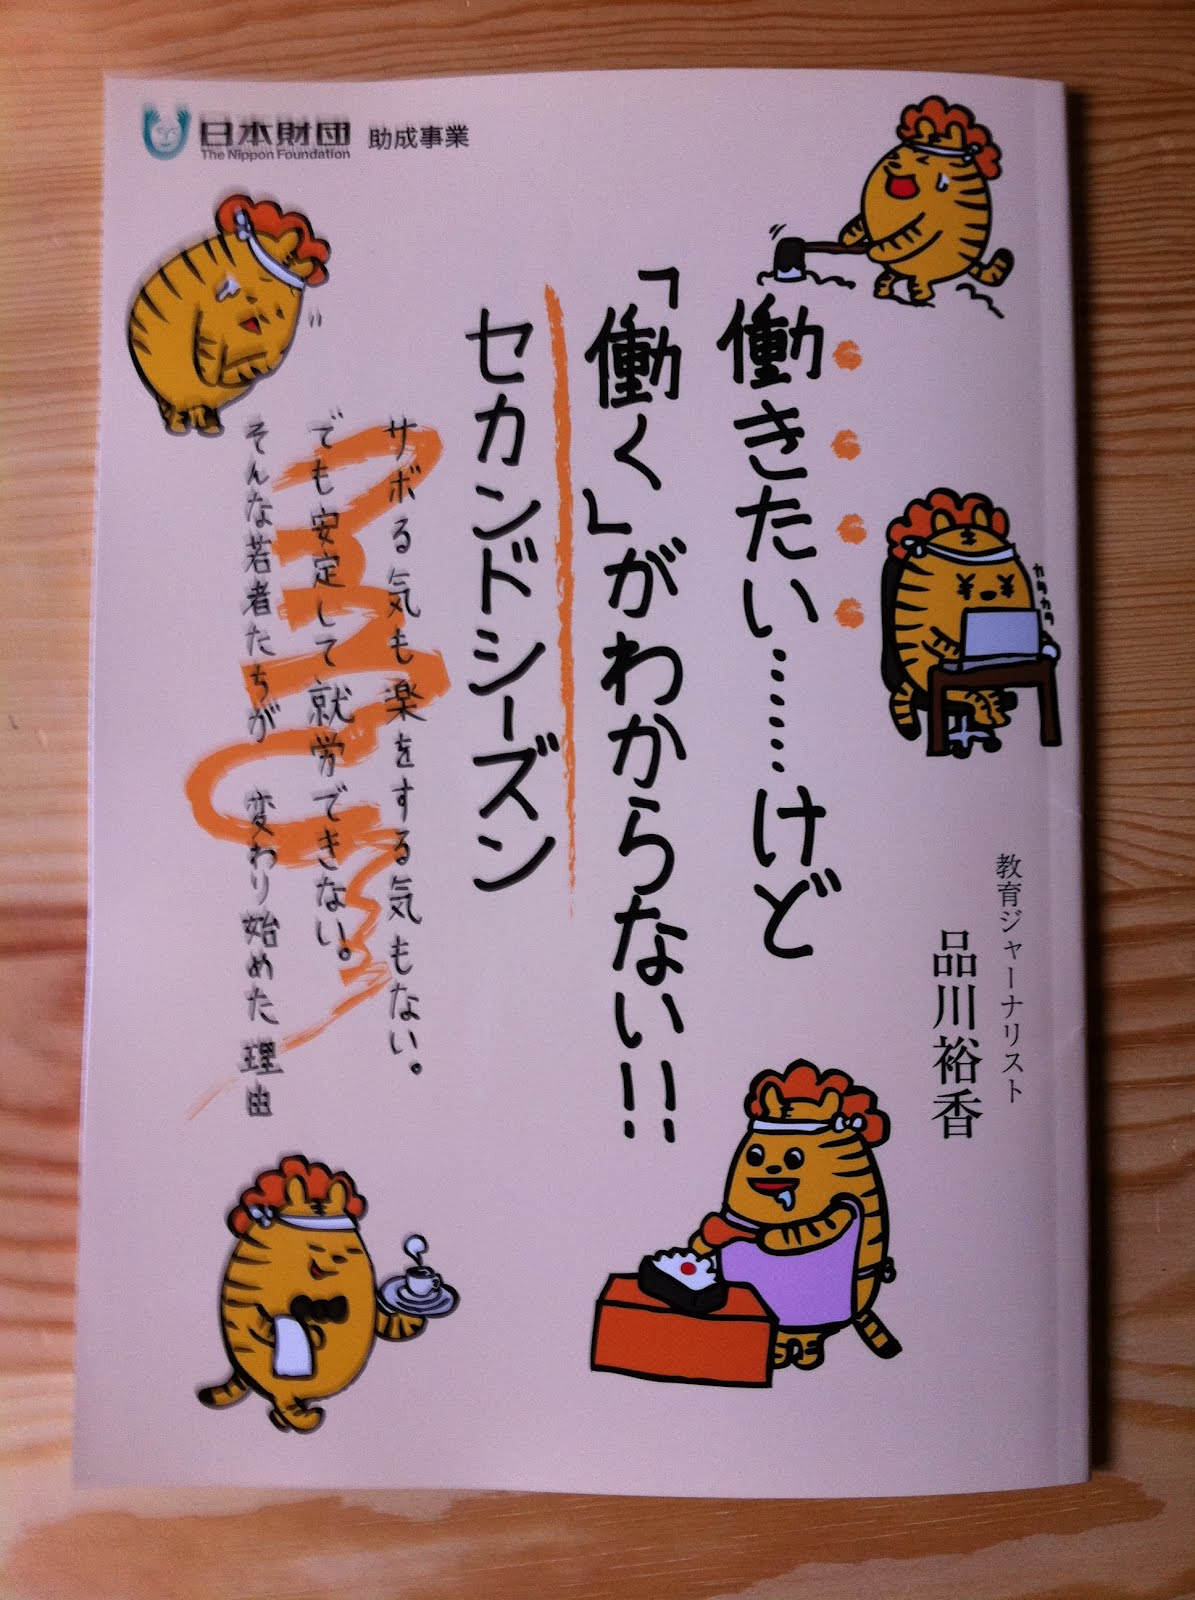 日本財団 助成事業
The Nippon Foundation
働きたい……けど
「働く」がわからない!!
セカンドシーズン
サボる気も楽をする気もない。
でも安定して就労できない。
そんな若者たちが 変わり始めた理由
カタカタ
教育ジャーナリスト
品川裕香